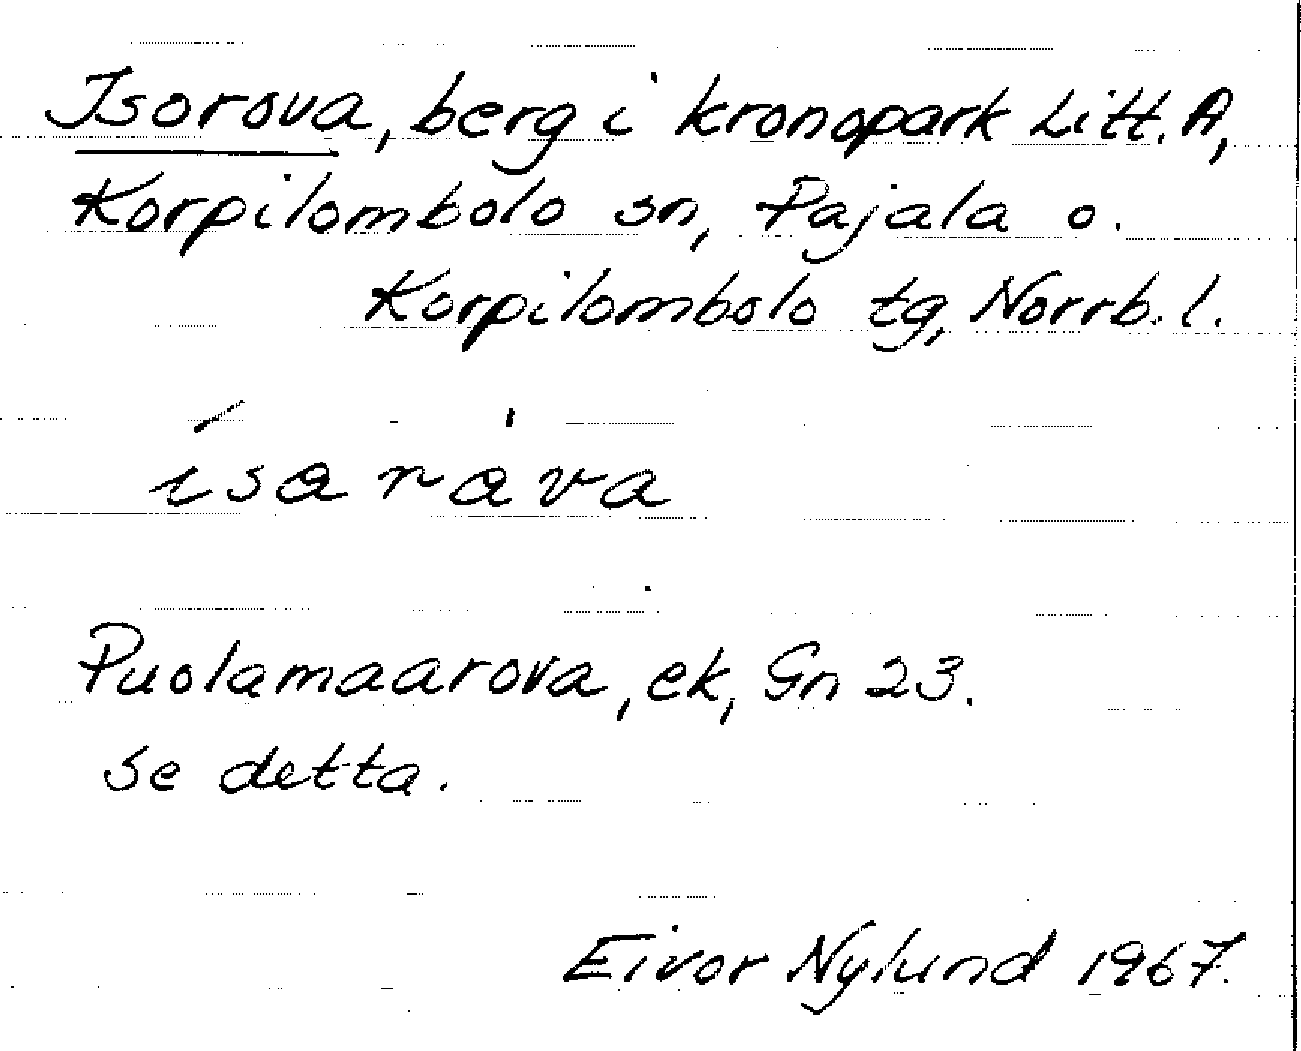 Isorova, berg i kronopark Litt. A,
Korpilombolo sn, Pajala o.
Korpilombolo tg, Norrb. l.
ísa ràva
Puolamaarova, ek, Gn 23.
se detta.
Eivor Nylund 1967.